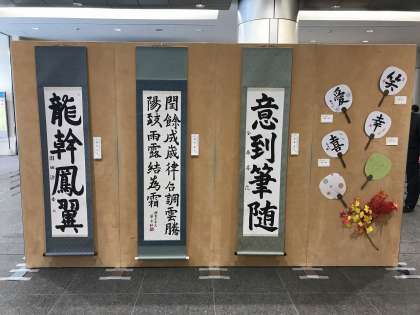 龍幹鳳翼
閏餘成歲律呂調雲騰
陽致雨露結為霜
意到筆隨
笑
愛
幸
喜